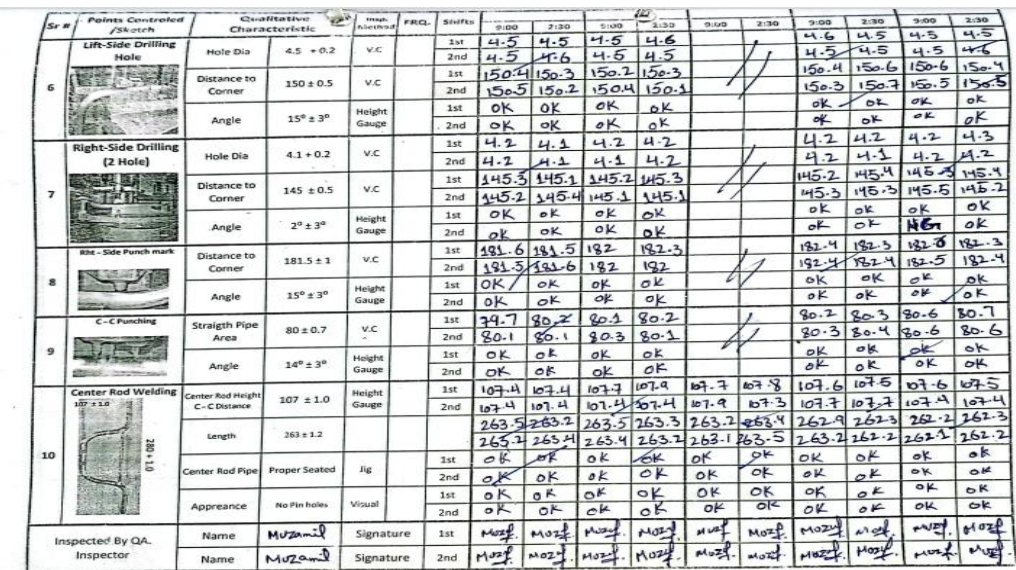 Sr # Points Controled /Sketch Qualitative Characteristic Insp. Method FRQ. Shifts 9:00 2:30 9:00 2:30 9:00 2:30 9:00 2:30 9:00 2:30
6 Lift-Side Drilling Hole
Hole Dia 4.5 +0.2 V.C 1st 4.5 4.5 4.5 4.6 4.6 4.5 4.5 4.5
2nd 4.5 4.6 4.5 4.5 4.5 4.5 4.5 4.6
Distance to Corner 150 ± 0.5 V.C 1st 150.4 150.3 150.2 150.3 150.4 150.6 150.6 150.4
2nd 150.5 150.2 150.4 150.1 150.3 150.7 150.5 150.5
Angle 15º ± 3º Height Gauge 1st OK OK OK OK OK OK OK OK
2nd OK OK OK OK OK OK OK OK
7 Right-Side Drilling (2 Hole)
Hole Dia 4.1 + 0.2 V.C 1st 4.2 4.1 4.2 4.2 4.2 4.2 4.2 4.3
2nd 4.2 4.1 4.1 4.2 4.2 4.1 4.2 4.2
Distance to Corner 145 ±0.5 V.C 1st 145.3 145.1 145.2 145.3 145.2 145.4 145.3 145.4
2nd 145.2 145.4 145.1 145.1 145.3 145.3 145.5 145.2
Angle 2º ± 3º Height Gauge 1st OK OK OK OK OK OK OK OK
2nd OK OK OK OK OK OK NG OK
8 Rht - Side Punch mark
Distance to Corner 181.5 ± 1 V.C 1st 181.6 181.5 182 182.3 182.4 182.3 182.3
2nd 181.5 181.6 182 182 182.4 182.4 182.5 182.4
Angle 15º ± 3º Height Gauge 1st OK OK OK OK OK OK OK OK
2nd OK OK OK OK OK OK OK OK
9 C - C Punching
Straigth Pipe Area 80 ± 0.7 V.C 1st 79.7 80.2 80.1 80.2 80.2 80.3 80.6 80.7
2nd 80.1 80.1 80.3 80.1 80.3 80.4 80.6 80.6
Angle 14º ± 3º Height Gauge 1st OK OK OK OK OK OK OK OK
2nd OK OK OK OK OK OK OK OK
10 Center Rod Welding
107 ±1.0
280 + 1.0
Center Rod Height C - C Distance 107 ± 1.0 Height Gauge 1st 107.4 107.4 107.7 107.9 107.7 107.8 107.6 107.5 107.6 107.5
2nd 107.4 107.4 107.4 107.4 107.9 107.3 107.7 107.7 107.4 107.4
Length 263 ± 1.2 263.5 263.2 263.5 263.3 263.2 263.4 262.9 262.3 262.2 262.3
263.2 263.4 263.4 263.2 263.1 263.5 263.2 262.2 262.1 262.2
Center Rod Pipe Proper Seated Jig 1st OK OK OK OK OK OK OK OK OK OK
2nd OK OK OK OK OK OK OK OK OK OK
Appreance No Pin holes Visual 1st OK OK OK OK OK OK OK OK OK OK
2nd OK OK OK OK OK OK OK OK OK OK
Inspected By QA. Inspector
Name Muzamil Signature 1st
Name Muzamil Signature 2nd